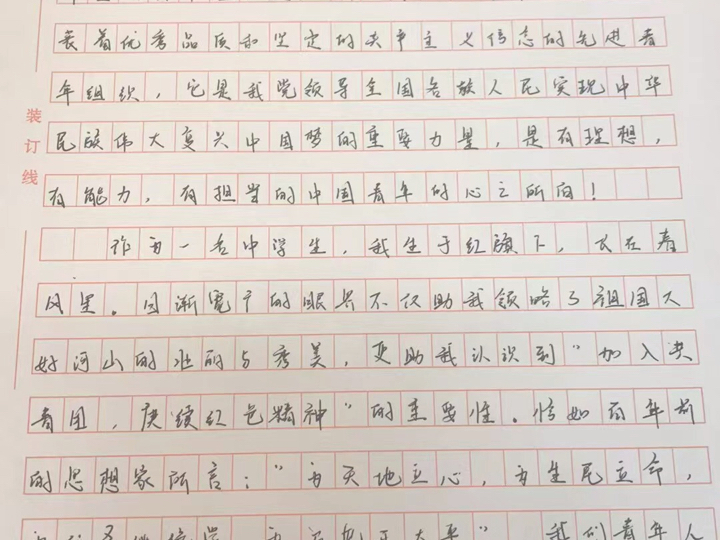 表着优秀品质和坚定的共产主义信念的先进青
年组织，它是我党领导全国各族人民实现中华
民族伟大复兴中国梦的重要力量，是有理想，
有能力，有担当的中国青年的心之所向！
作为一名中学生，我生于红旗下，长在春
风里。日渐宽广的眼界不仅助我领略了祖国大
好河山的壮丽与秀美，更助我认识到“加入共
青团，赓续红色精神”的重要性。恰如百年前
的思想家所言：“为天地立心，为生民立命，
为 太平” 我们青年人
装订线